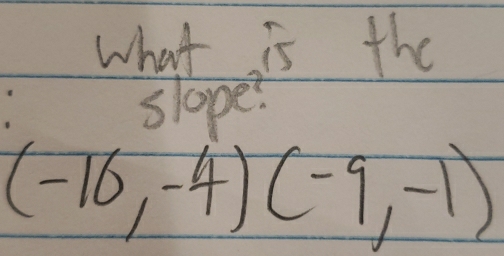 What is the
slope?
:
(-16,-4)(-9,-1)